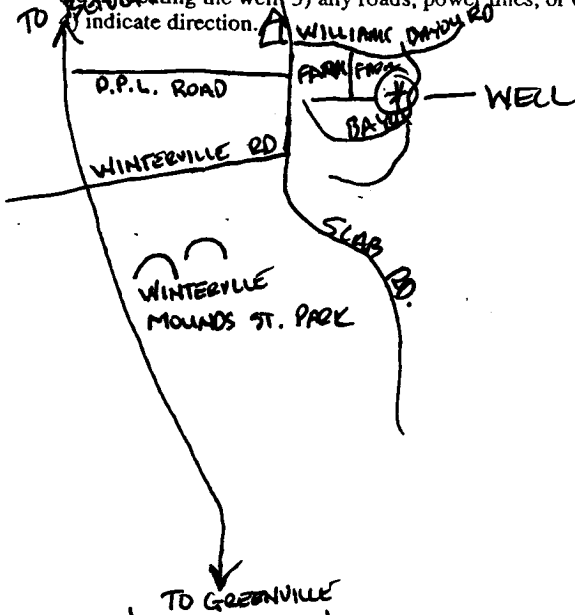 the well 3) any roads, power lines, or
TO
indicate direction.
WILLIAMS BAYOU RD
FARM FARM
P.P.L. ROAD
WELL
BAYOU
WINTERVILLE RD
SLAB
B.
WINTERVILLE
MOUNDS ST. PARK
TO GREENVILLE